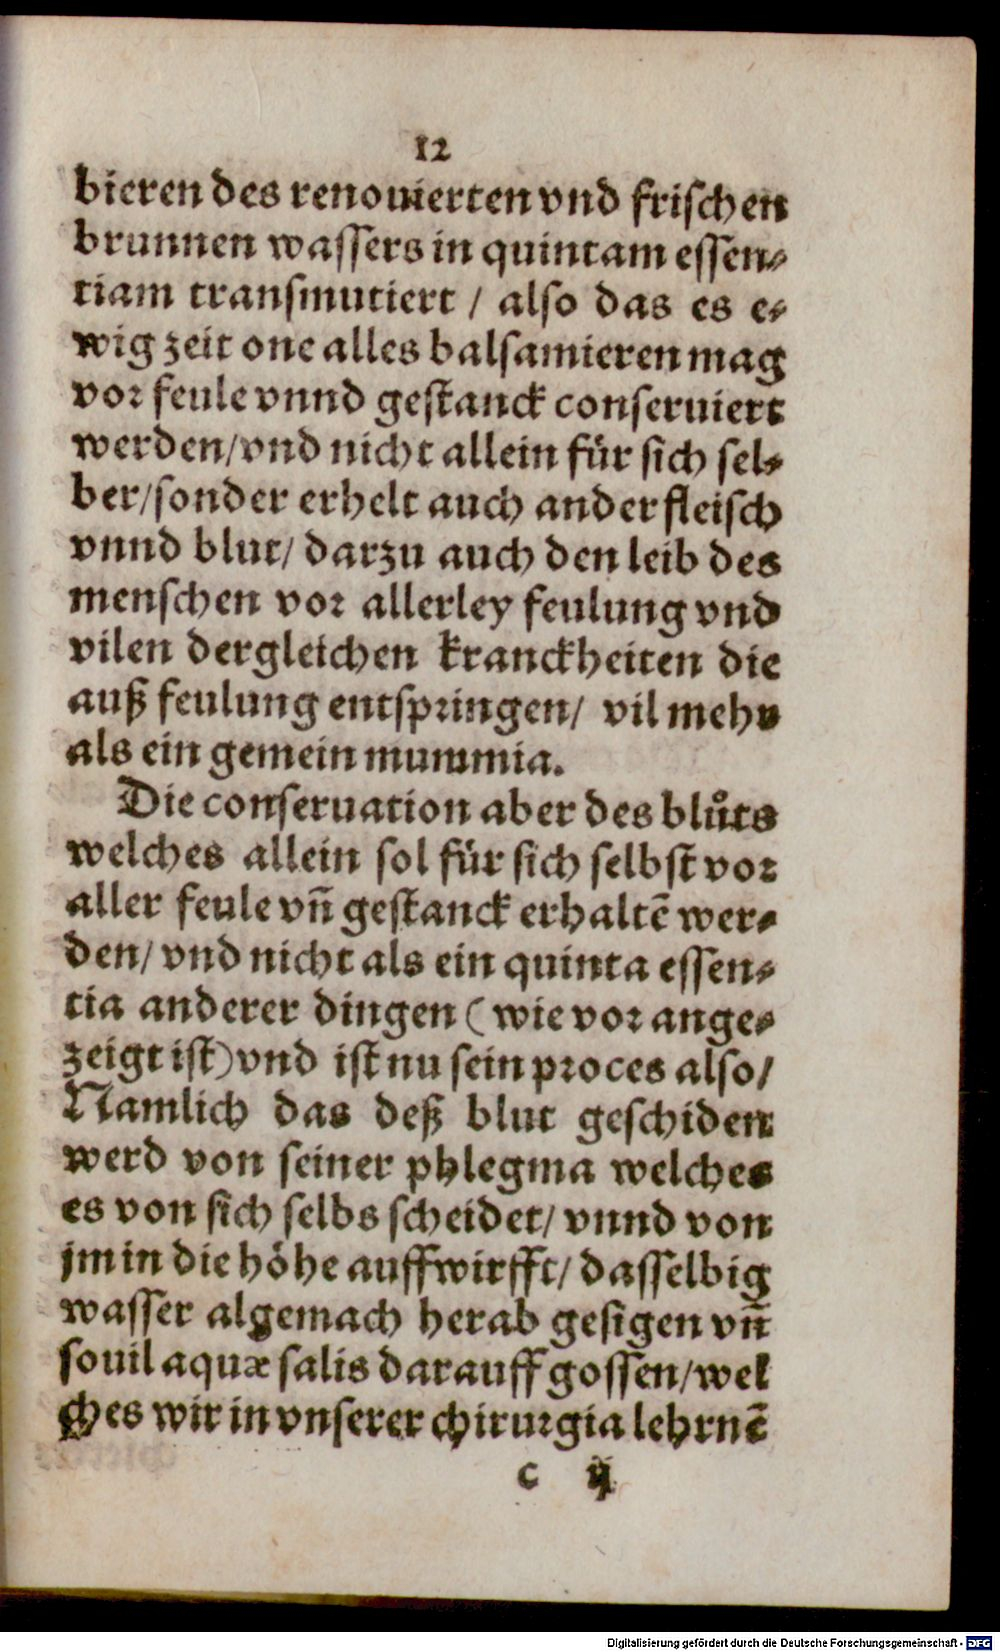 12
bieren des renouierten vnd frischen
brunnen wassers in quintam essen-
tiam transmutiert / also das es e-
wig zeit one alles balsamieren mag
vor feule vnnd gestanck conseruiert
werden/vnd nicht allein für sich sel-
ber/sonder erhelt auch ander fleisch
vnnd blut/ darzu auch den leib des
menschen vor allerley feulung vnd
vilen dergleichen kranckheiten die
auß feulung entspringen/ vil mehr
als ein gemein mummia.
Die conseruation aber des blůts
welches allein sol für sich selbst vor
aller feule vñ gestanck erhaltē wer-
den/ vnd nicht als ein quinta essen-
tia anderer dingen ( wie vor ange-
zeigt ist) vnd ist nu sein proces also/
Namlich das deß blut geschiden
werd von seiner phlegma welches
es von sich selbs scheidet/ vnnd von
jm in die höhe auffwirfft/ dasselbig
wasser algemach herab gesigen vñ
souil aquæ salis darauff gossen/wel
ches wir in vnserer chirurgia lehrnē
c ij
Digitalisierung gefördert durch die Deutsche Forschungsgemeinschaft - DFG